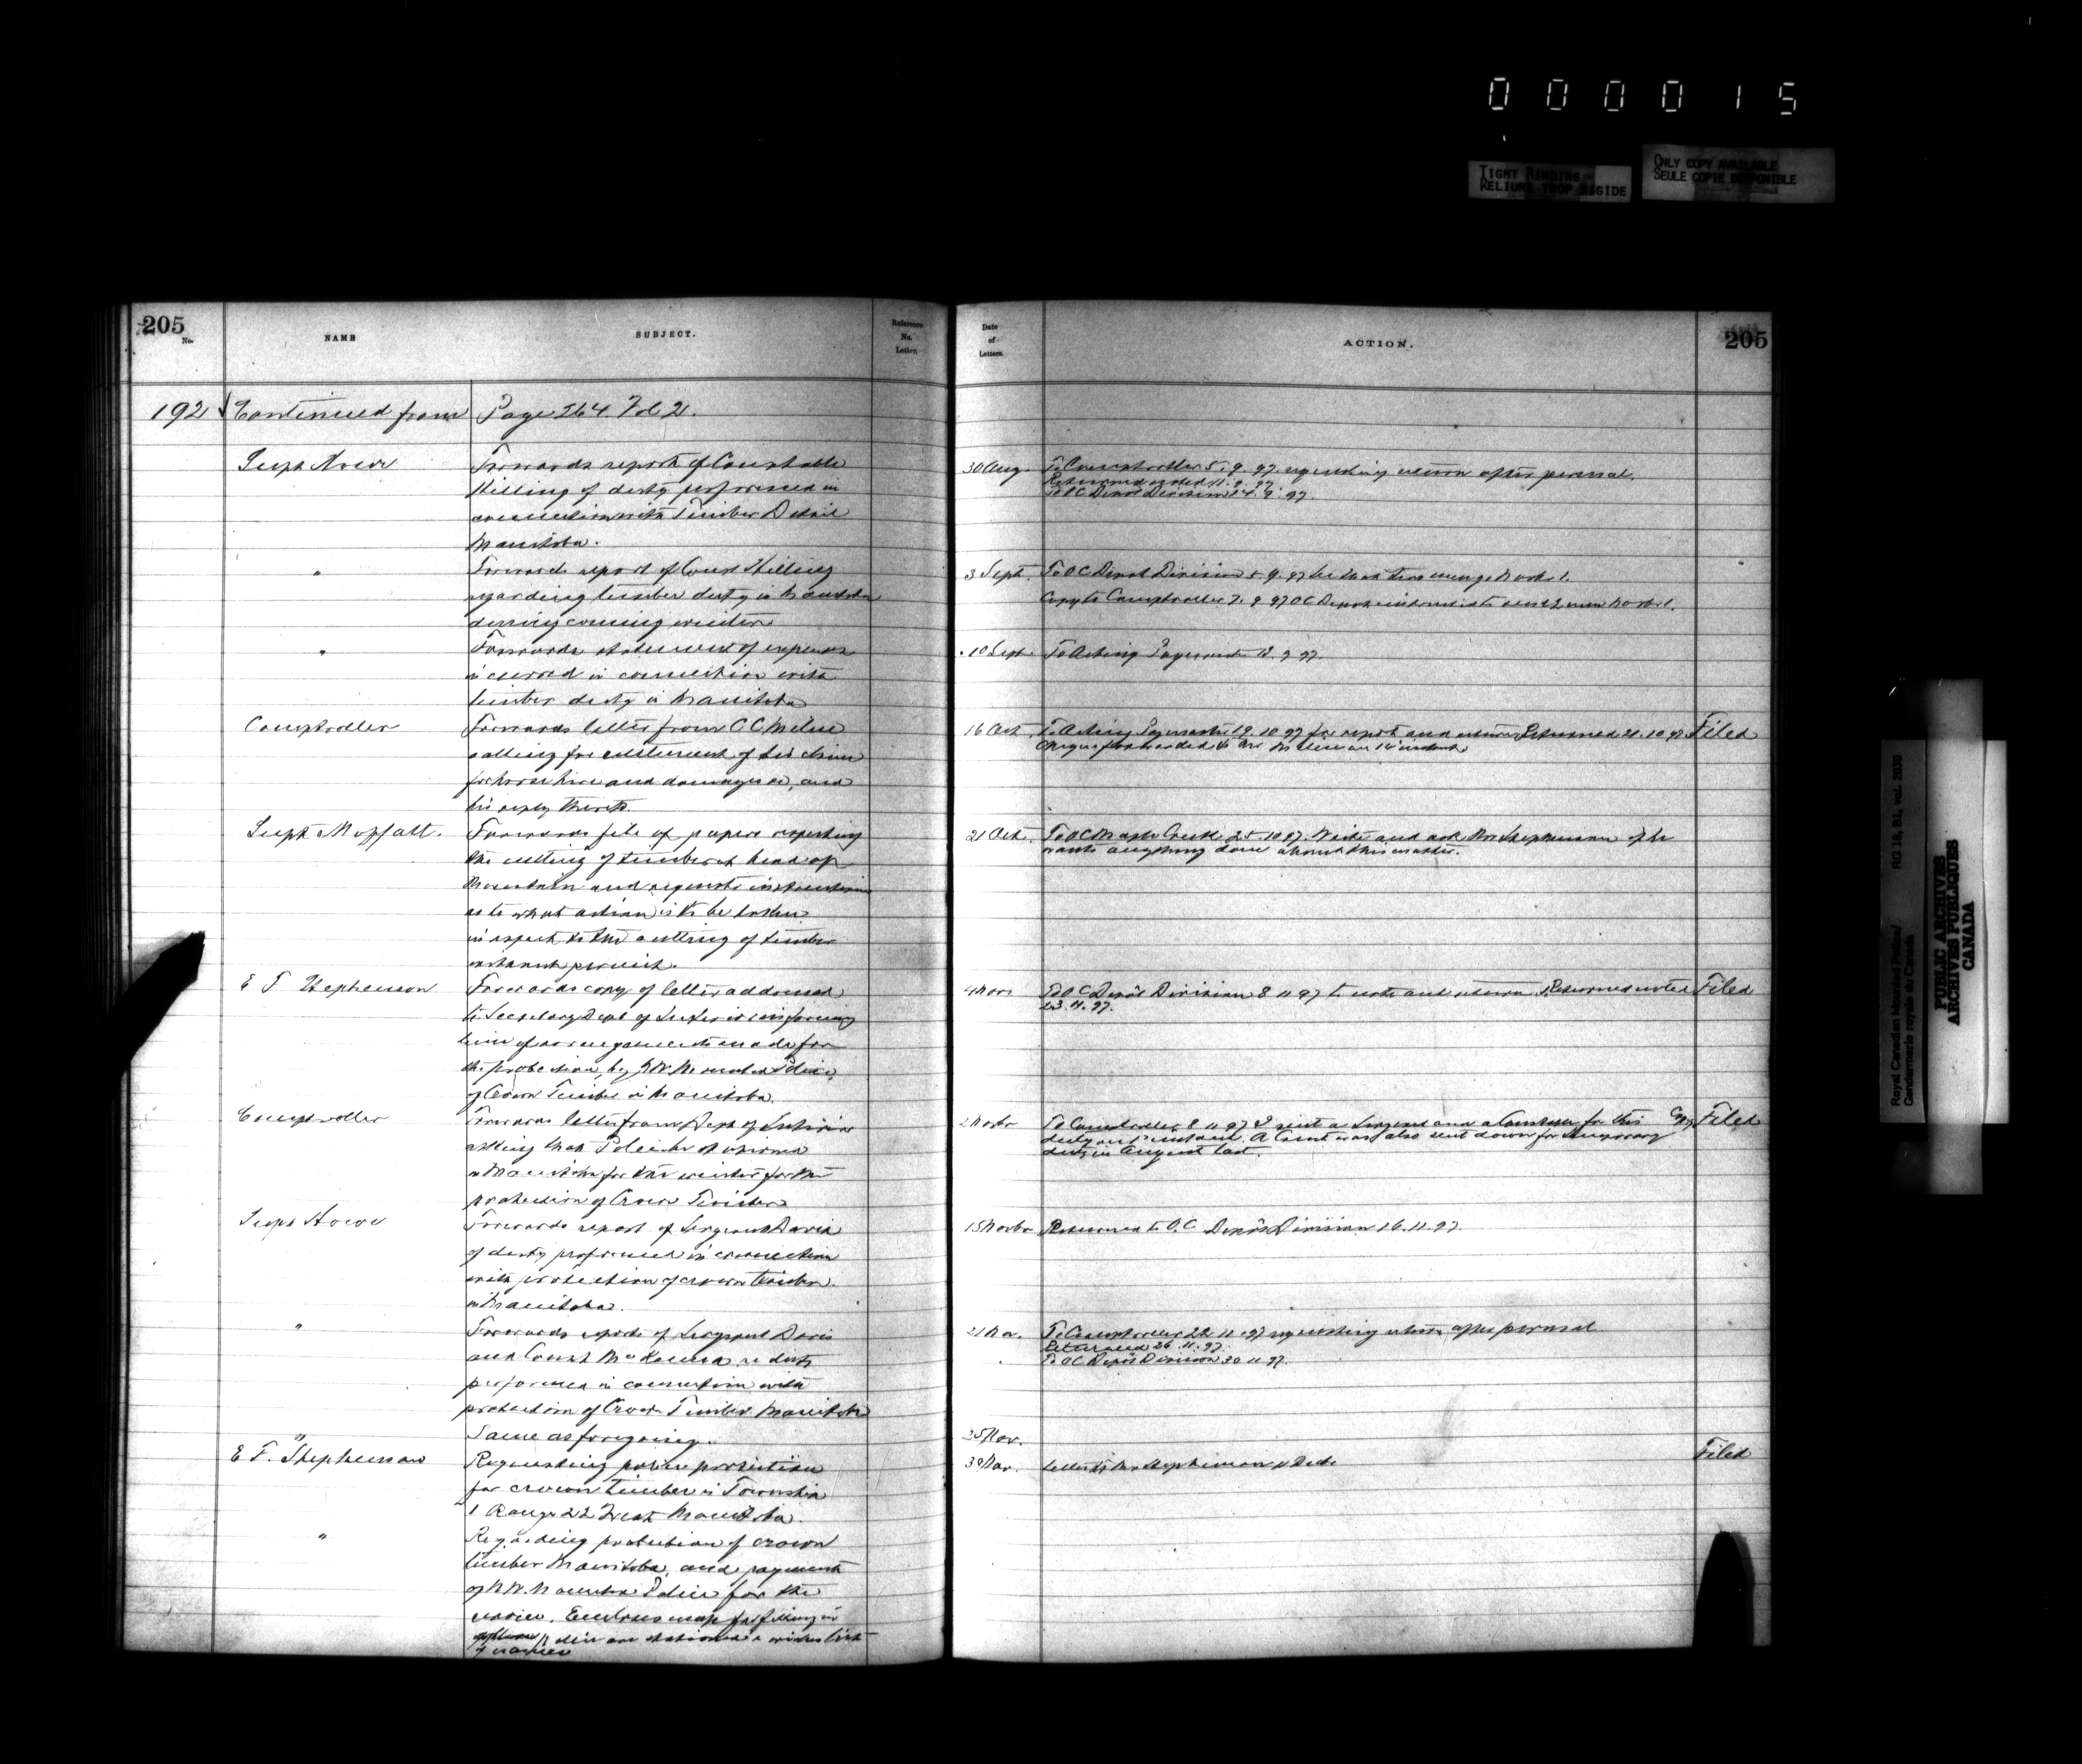 000015
TIGHT BINDING
RELIURE TROP RIGIDE
ONLY COPY AVAILABLE
SEULE COPIE DISPONIBLE
205
No.
NAME
SUBJECT.
Reference
No.
Letter.
Date
of
Letters.
ACTION.
205
192 Continued from Page 264. Vol 2.
Supt Howe
Forwards report of Constable
Stilling of duty performed in
connection with Timber Detail
Manitoba.
30 Aug. To Comptroller 5.9.97. requesting return after perusal.
Returned noted 11.9.97
To OC Depot Division 14.9.97.
"
Forwards report of Const Stilling
regarding timber duty in Manitoba
during coming winter
3 Sept. To OC Depot Division 5.9.97
Copy to Comptroller 7.9.97 OC Depot
"
Forwards statement of expenses
incurred in connection with
timber duty in Manitoba
10 Sept. To Acting Paymaster 13.9.97.
Comptroller
Forwards letter from C C Milne
calling for settlement of his claim
for horse hire and damages &c, and
his reply thereto.
16 Oct. To Acting Paymaster 19.10.97 for report and return. Returned 21.10.97 Filed
Cheque forwarded to Mr Milne on 16 instant.
Supt Moffatt.
Forwards file of papers respecting
the cutting of timber at head of
Mountain and requests instructions
as to what action is to be taken
in respect to the cutting of timber
without permit.
21 Oct. To OC Maple Creek 25.10.97. Write and ask Mr Stephenson if he
wants anything done about this matter.
E F Stephenson
Forwards copy of letter addressed
to Secretary Dept of Interior informing
him of arrangements made for
the protection, by N.W. Mounted Police,
of Crown Timber in Manitoba.
4 Nov. To OC Depôt Division 8.11.97 to note and return. Returned noted Filed
23.11.97.
Comptroller
Forwards letter from Dept of Interior
asking that Police be stationed
in Manitoba for the winter for the
protection of Crown Timber
2 Novbr To Comptroller 8.11.97 I sent a Sergeant and a Constable for this Copy Filed
duty on 1st instant. A Const was also sent down for temporary
duty in August last.
Supt Howe
Forwards report of Sergeant Davis
of duty performed in connection
with protection of crown timber
in Manitoba.
15 Novbr Returned to O.C. Depôt Division 16.11.97.
"
Forwards reports of Sergeant Davis
and Const re duty
performed in connection with
protection of Crown Timber Manitoba
21 Nov. To Comptroller 22.11.97 requesting return after perusal
Returned 26.11.97.
To OC Depôt Division 30.11.97.
"
Same as foregoing.
25 Nov.
E F. Stephenson
Requesting police protection
for crown timber in Township
1 Range 22 West Manitoba.
30 Nov. Letter to Mr Stephenson 4 Decbr Filed
"
Regarding protection of crown
timber Manitoba, and payment
of N.W. Mounted Police for the
service. Encloses map for filling in
where Police are stationed & wishes list
of names
Royal Canadian Mounted Police/ RG 18, B1, vol. 2030
Gendarmerie royale du Canada
PUBLIC ARCHIVES
ARCHIVES PUBLIQUES
CANADA